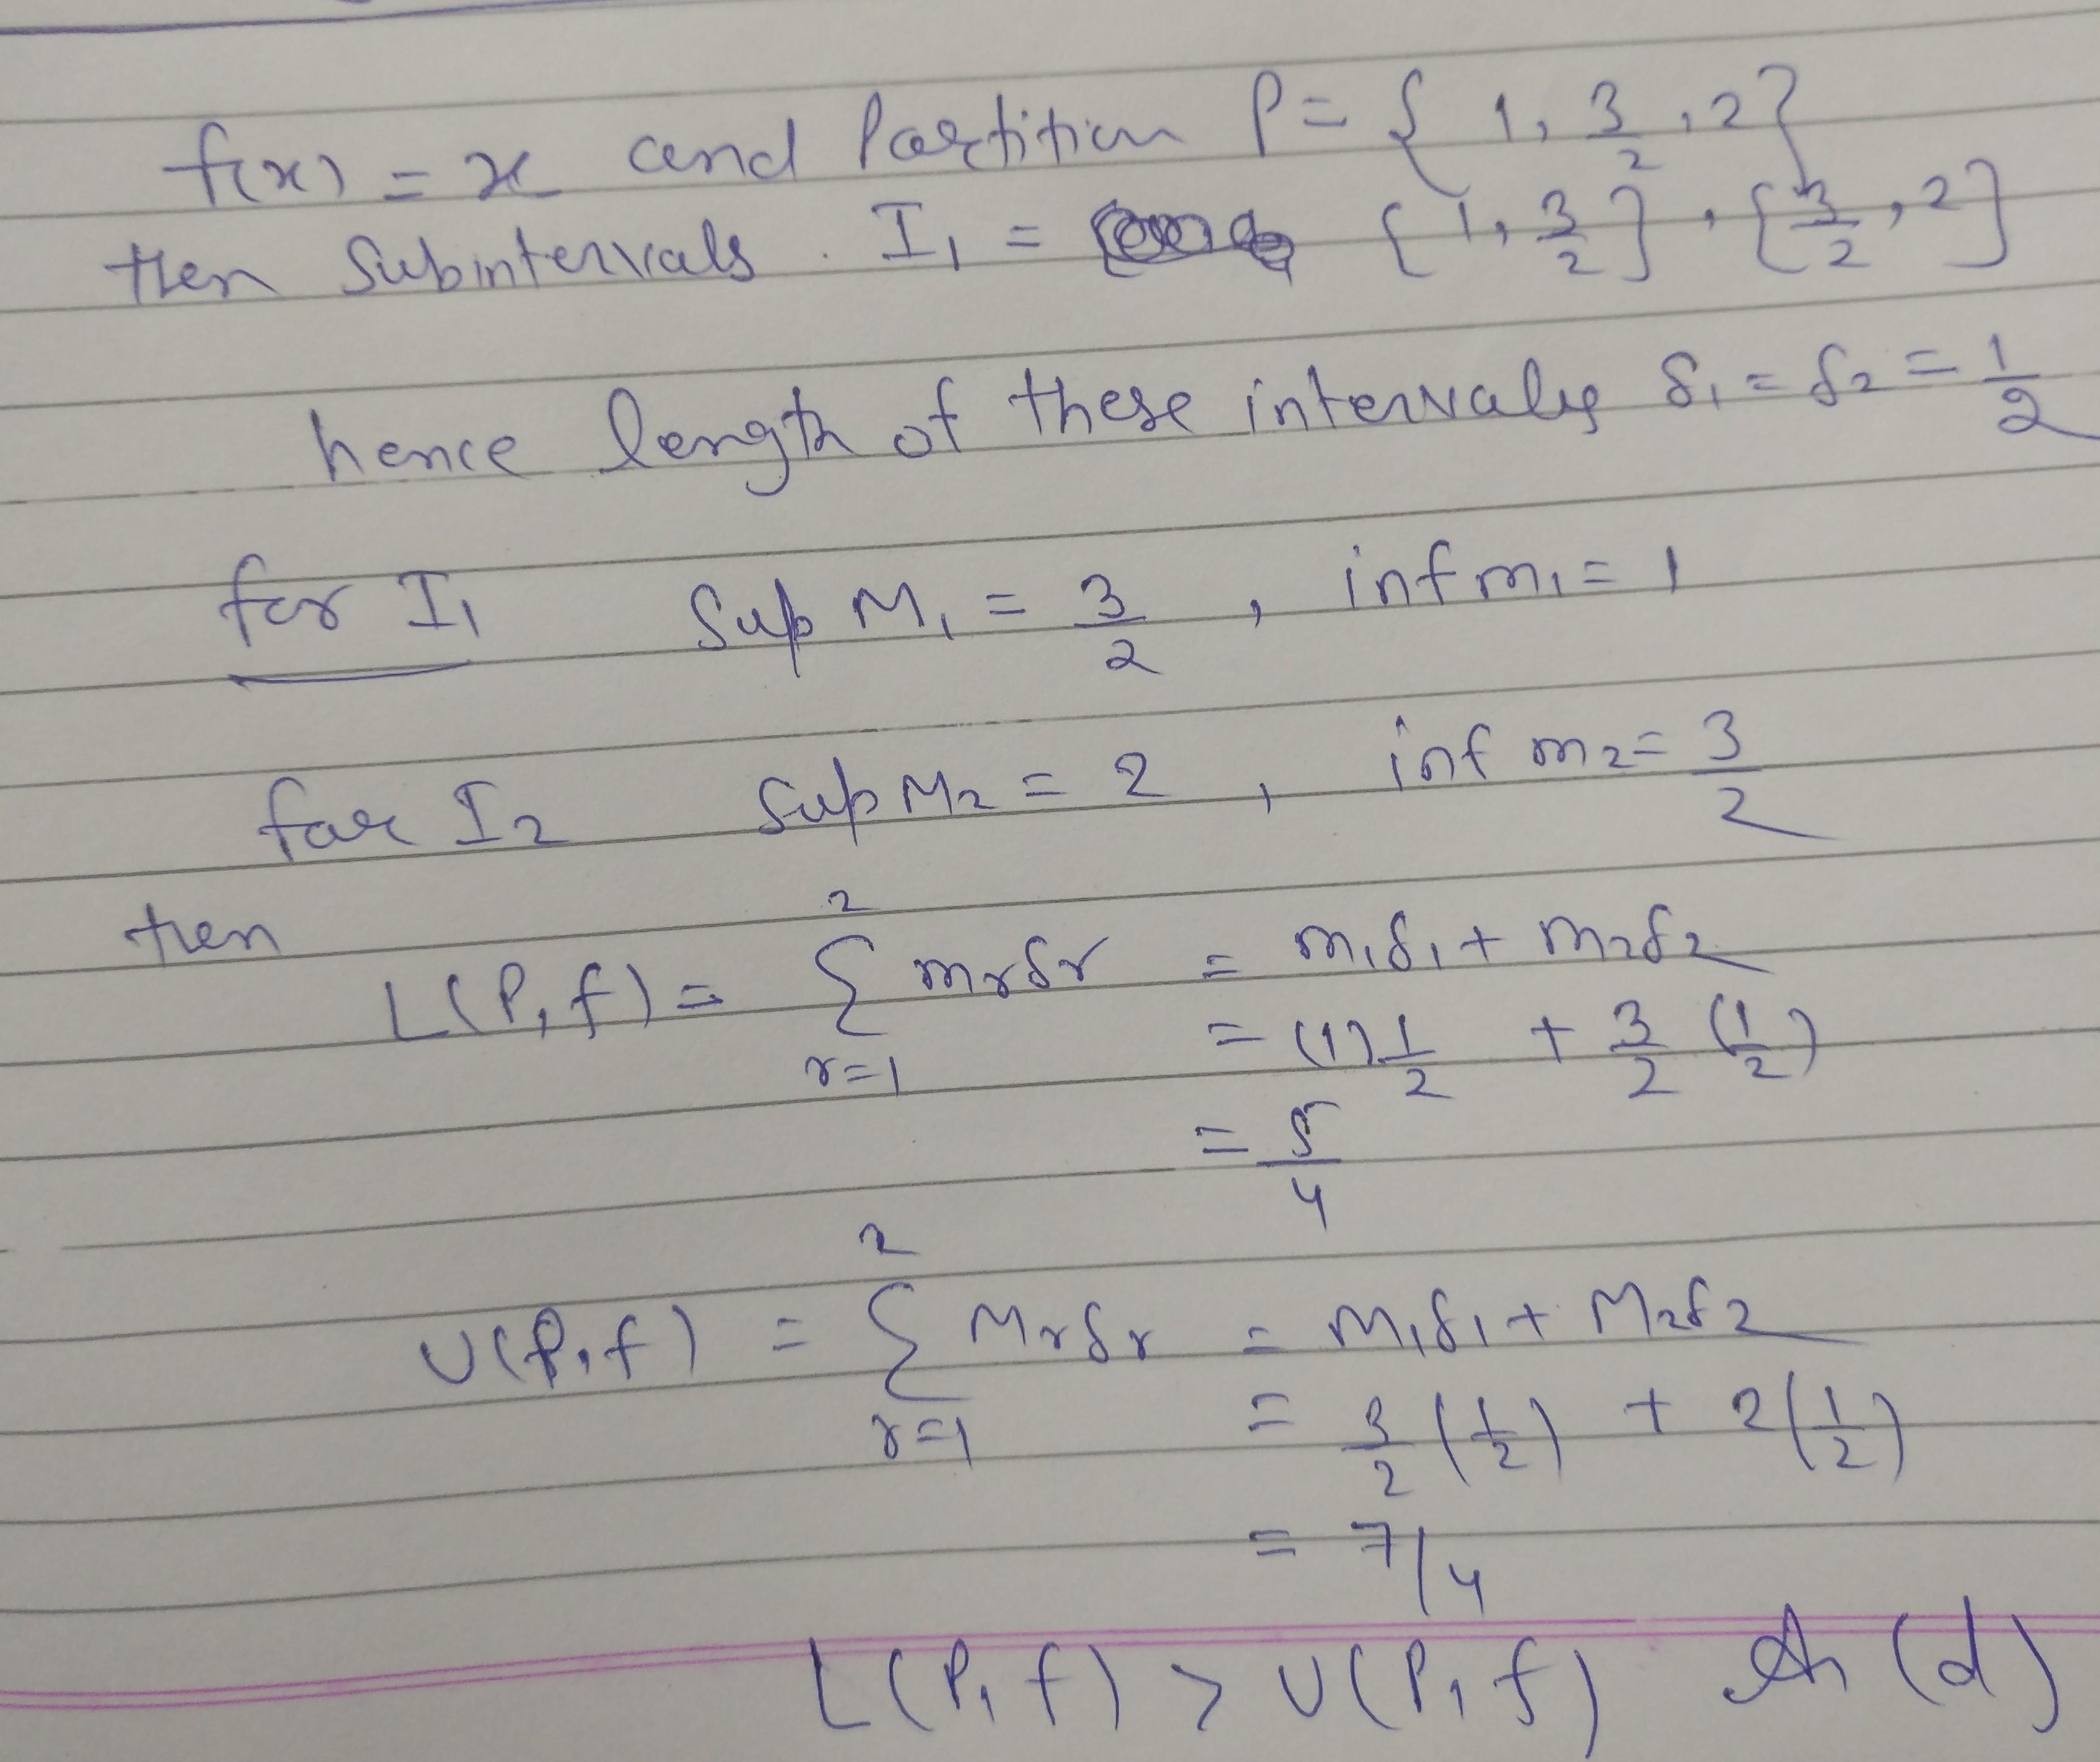 f(x) = x and Partition P = { 1, 3/2, 2 }
then Subintervals. I₁ = [1, 3/2], [3/2, 2]
hence length of these intervals δ₁ = δ₂ = 1/2
for I₁ Sup M₁ = 3/2 , inf m₁ = 1
for I₂ Sup M₂ = 2 , inf m₂ = 3/2
then
L(P, f) = Σ_{r=1}^{2} mᵣδᵣ = m₁δ₁ + m₂δ₂
= (1) 1/2 + 3/2 (1/2)
= 5/4
U(P, f) = Σ_{r=1}^{2} Mᵣδᵣ = M₁δ₁ + M₂δ₂
= 3/2 (1/2) + 2(1/2)
= 7/4
L(P, f) > U(P, f) An (d)